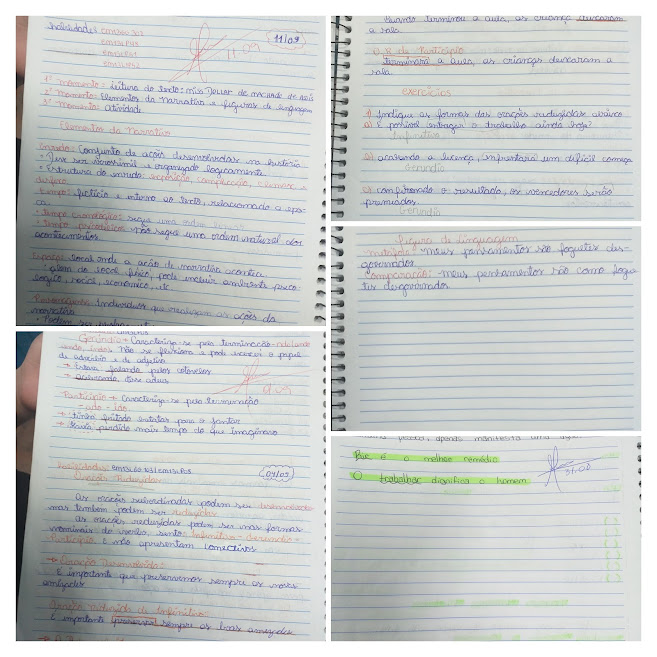 Habilidades:
11/09
11.09
1º momento: Leitura do texto: miss Dollar de machado de assis
2º momento: Elementos da Narrativa e figuras de linguagem
3º momento: atividade
Elementos da Narrativa
Enredo: Conjunto de ações desenvolvidas na história
• Deve ser verossímil e organizado logicamente.
• Estrutura do enredo: exposição, complicação, clímax e
desfecho
Tempo: fictício e interno ao texto, relacionado a épo-
ca.
• tempo cronológico: segue uma ordem
• tempo psicológico: Não segue uma ordem natural dos
acontecimentos.
Espaço: Local onde a ação da narrativa acontece
• além do local físico, pode incluir ambiente psico
lógico, social, econômico, etc
Personagens: Indivíduos que realizam as ações da
narrativa
• Podem ser
Gerúndio → Caracteriza-se pela terminação
Não se flexiona e pode exercer o papel
de advérbio e de adjetivo
→ Estava falando pelos cotovelos
→ acenando, disse adeus
Particípio → Caracteriza-se pela terminação
-ado - ido
→ tinha fritado batatas para o jantar
→ Havia perdido mais tempo do que imaginava
Habilidades:
Orações Reduzidas
As orações subordinadas podem ser desenvolvidas
mas também podem ser reduzidas
as orações reduzidas podem ser nas formas
nominais do verbo, sendo: Infinitivo - Gerúndio -
Particípio. E não apresentam conectivos
→ Oração Desenvolvida:
É importante que preservemos sempre as novas
amizades
Oração reduzida de Infinitivo:
É importante preservar sempre as boas amizades
Quando terminou a aula, as crianças deixaram
a sala.
O. R de Particípio
Terminada a aula, as crianças deixaram a
sala.
exercícios
1) Indique as formas das orações reduzidas abaixo
a) É possível entregar o trabalho ainda hoje?
Infinitivo
b) acabando a licença, enfrentará um difícil começo
Gerúndio
c) confirmado o resultado, os vencedores serão
premiados.
Gerundio
Figura de Linguagem
metáfora: meus pensamentos são foguetes des-
governados
Comparação: meus pensamentos são como fogue
tes desgovernados
é o melhor remédio
O trabalhar dignifica o homem